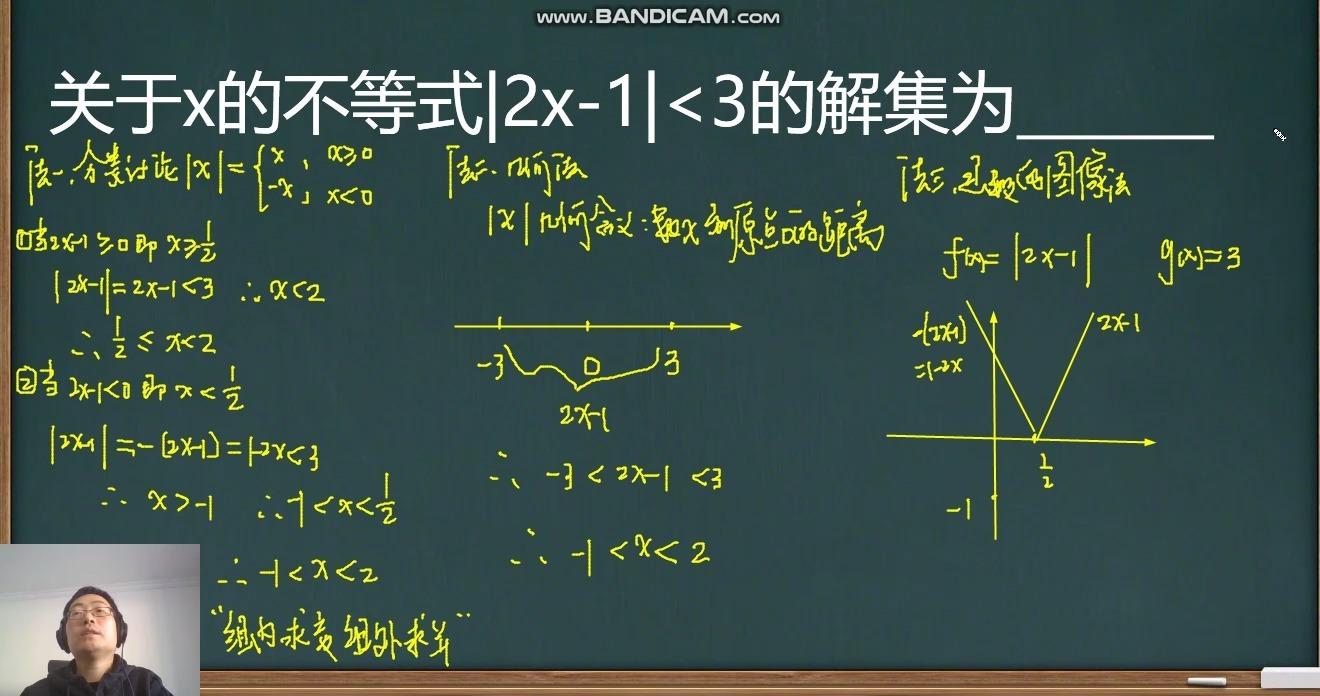 www.BANDICAM.com
关于x的不等式|2x-1|<3的解集为______
法一、分类讨论 |x|={x, x≥0
-x, x<0
①当2x-1≥0即x≥1/2
|2x-1|=2x-1<3 ∴x<2
∴1/2≤x<2
②当2x-1<0即x<1/2
|2x-1|=-(2x-1)=1-2x<3
∴x>-1 ∴-1<x<1/2
∴-1<x<2
"组内求交 组外求并"
法二、几何法
|x|几何含义:数x到原点的距离
-3 0 3
2x-1
∴-3<2x-1<3
∴-1<x<2
法三、函数的图像法
f(x)=|2x-1| g(x)=3
-(2x-1)
=1-2x
2x-1
1/2
-1